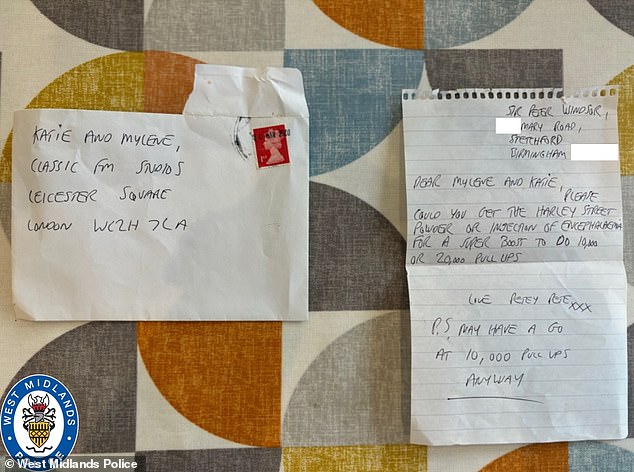 KATIE AND MYLENE,
CLASSIC FM STUDIOS
LEICESTER SQUARE
LONDON WC2H 7LA
SIR PETER WINDSOR,
MARY ROAD,
STETCHFORD
BIRMINGHAM
DEAR MYLENE AND KATIE,
PLEASE
COULD YOU GET THE HARLEY STREET
POWDER OR INJECTION OF
FOR A SUPER BOOST TO DO 10,000
OR 20,000 PULL UPS
LOVE PETEY PETE XXX
P.S MAY HAVE A GO
AT 10,000 PULL UPS
ANYWAY
WEST MIDLANDS
POLICE
© West Midlands Police